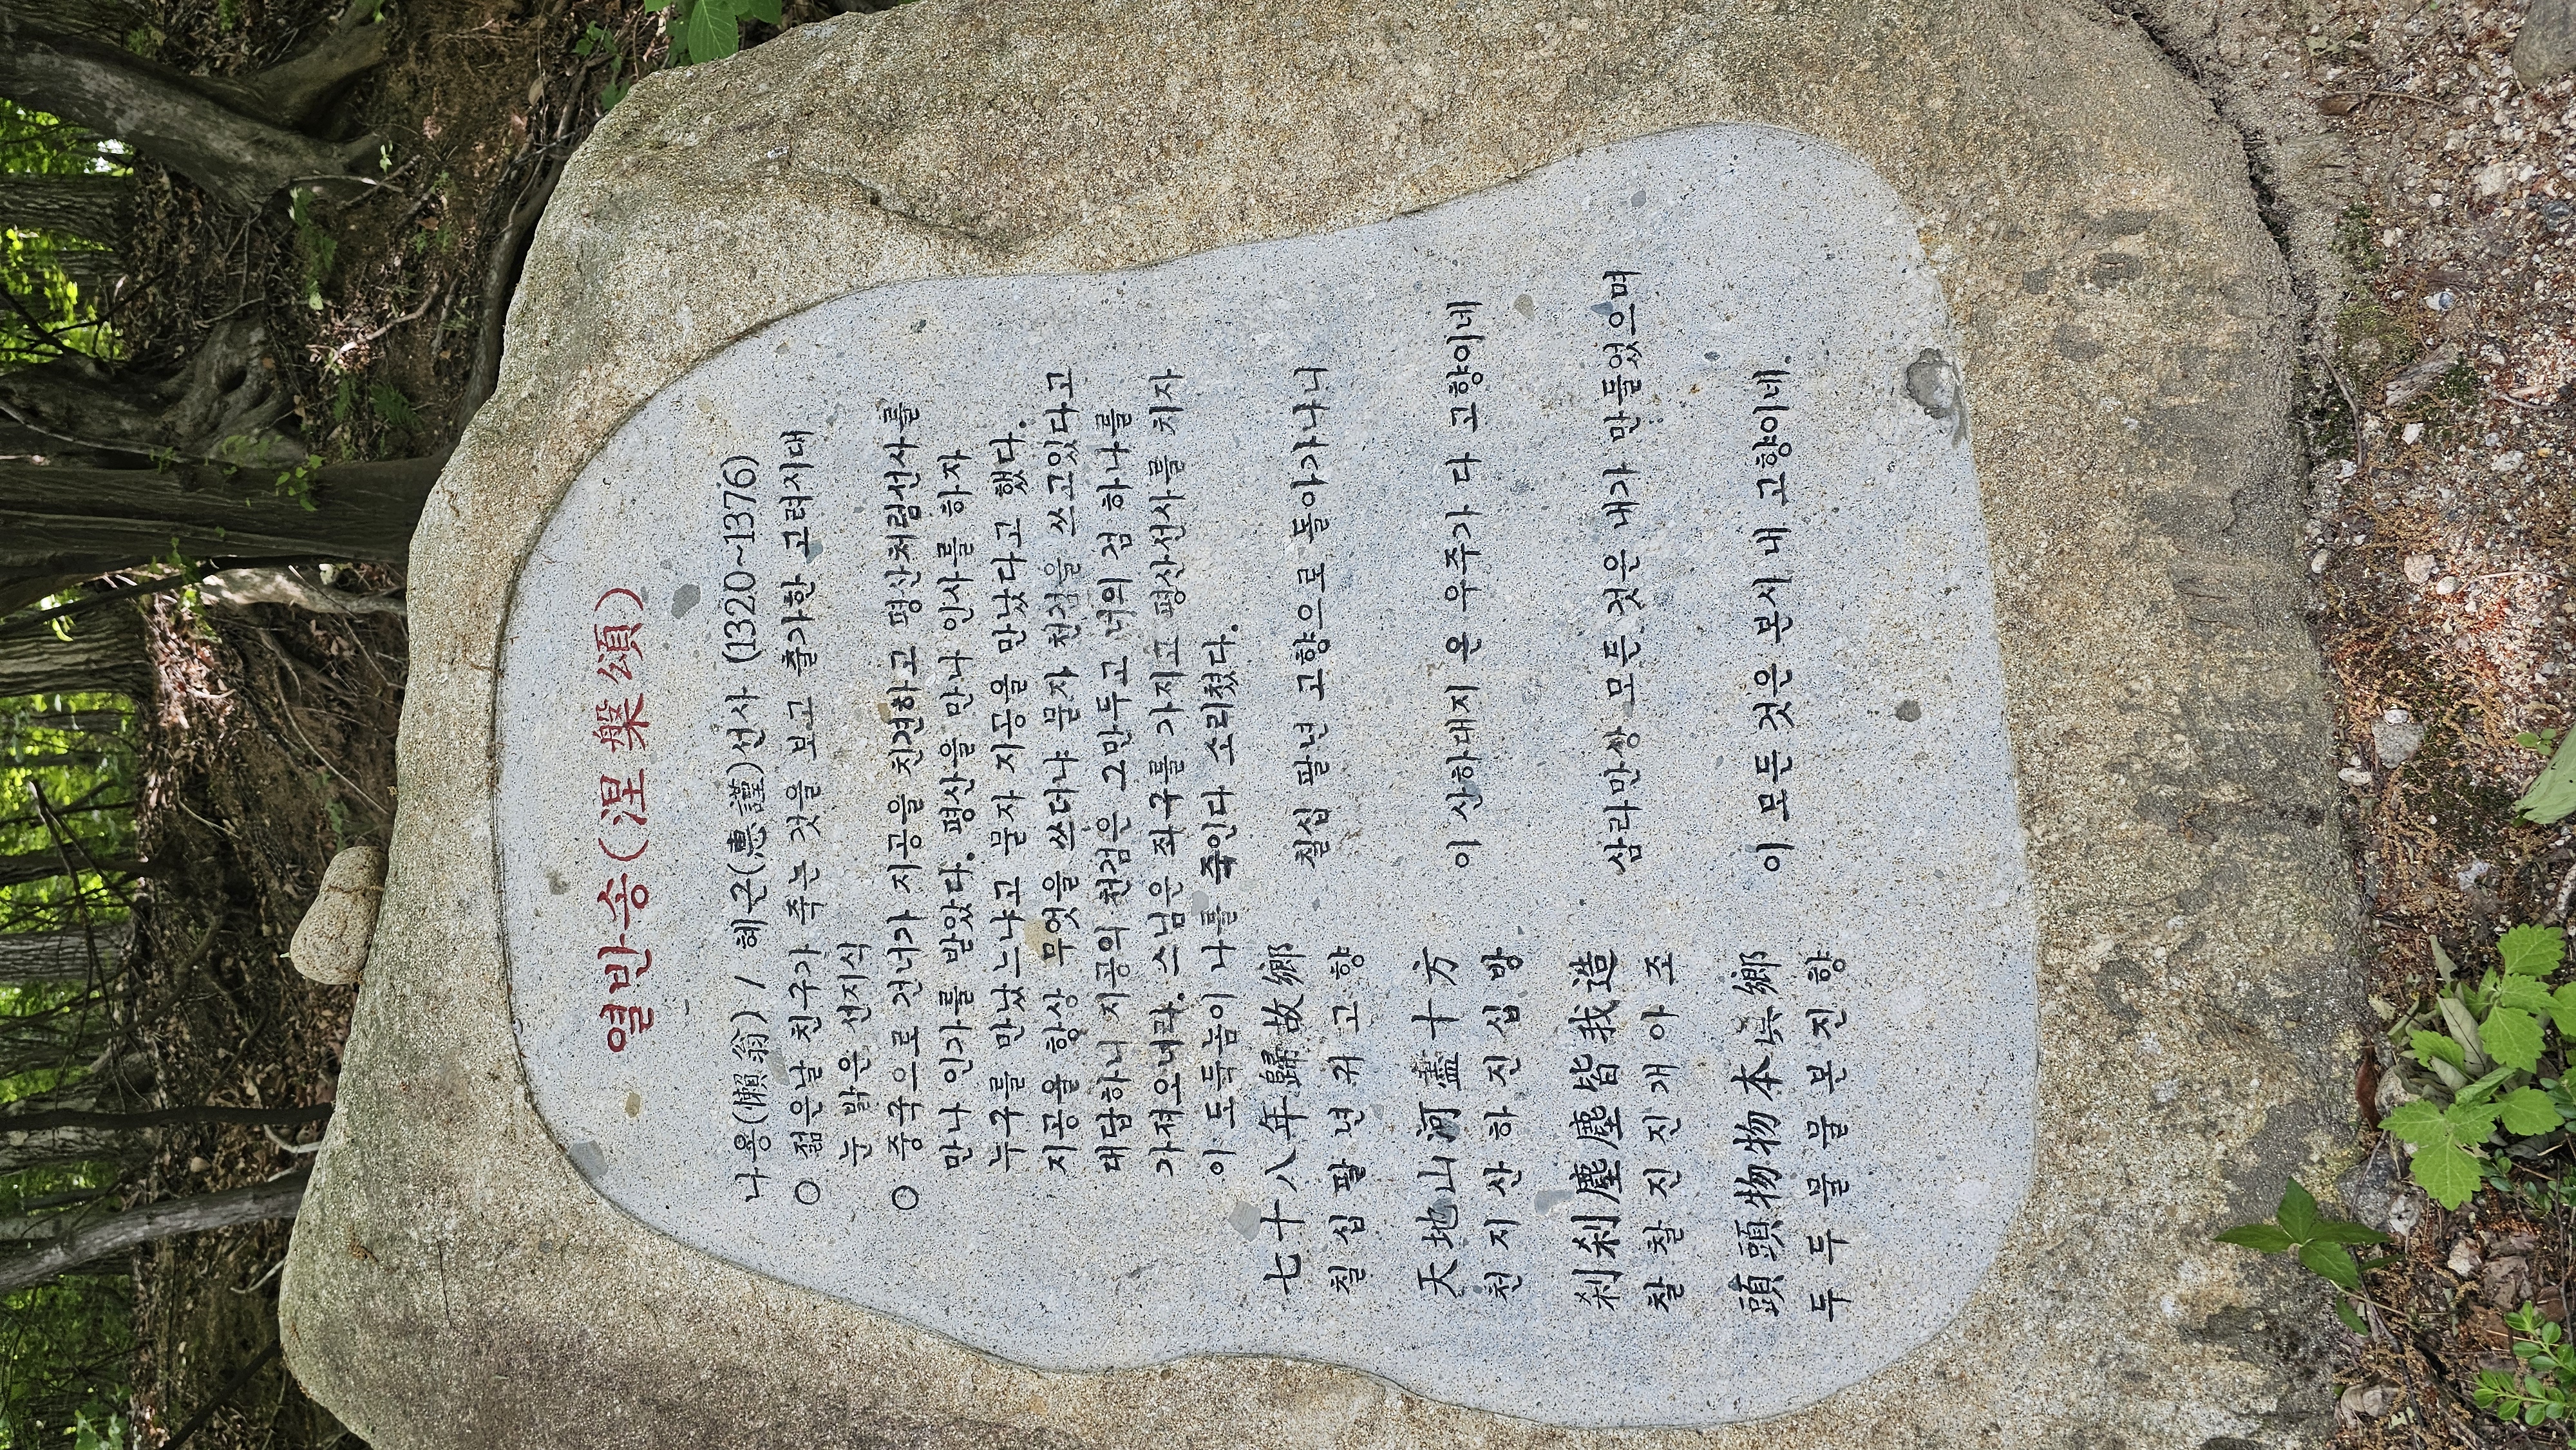 열반송(涅槃頌)
나옹(懶翁) / 혜근(惠謹)선사 (1320~1376)
○ 젊은날 친구가 죽는 것을 보고 출가한 고려시대
눈 밝은 선지식
○ 중국으로 건너가 지공을 친견하고 평산처림선사를
만나 인가를 받았다. 평산을 만나 인사를 하자
누구를 만났느냐고 묻자 지공을 만났다고 했다.
지공을 항상 무엇을 쓰더냐 묻자 천검을 쓰고있다고
대답하니 지공의 천검은 그만두고 너의 검 하나를
가져오너라. 스님은 좌구를 가지고 평산선사를 치자
이 도둑놈이 나를 죽인다 소리쳤다.
七十八年歸故鄉 칠십 팔년 고향으로 돌아가나니
칠 십 팔 년 귀 고 향
天地山河盡十方 이 산하대지 온 우주가 다 고향이네
천 지 산 하 진 십 방
刹刹塵塵皆我造 삼라만상 모든 것은 내가 만들었으며
찰 찰 진 진 개 아 조
頭頭物物本眞鄉 이 모든 것은 본시 내 고향이네.
두 두 물 물 본 진 향